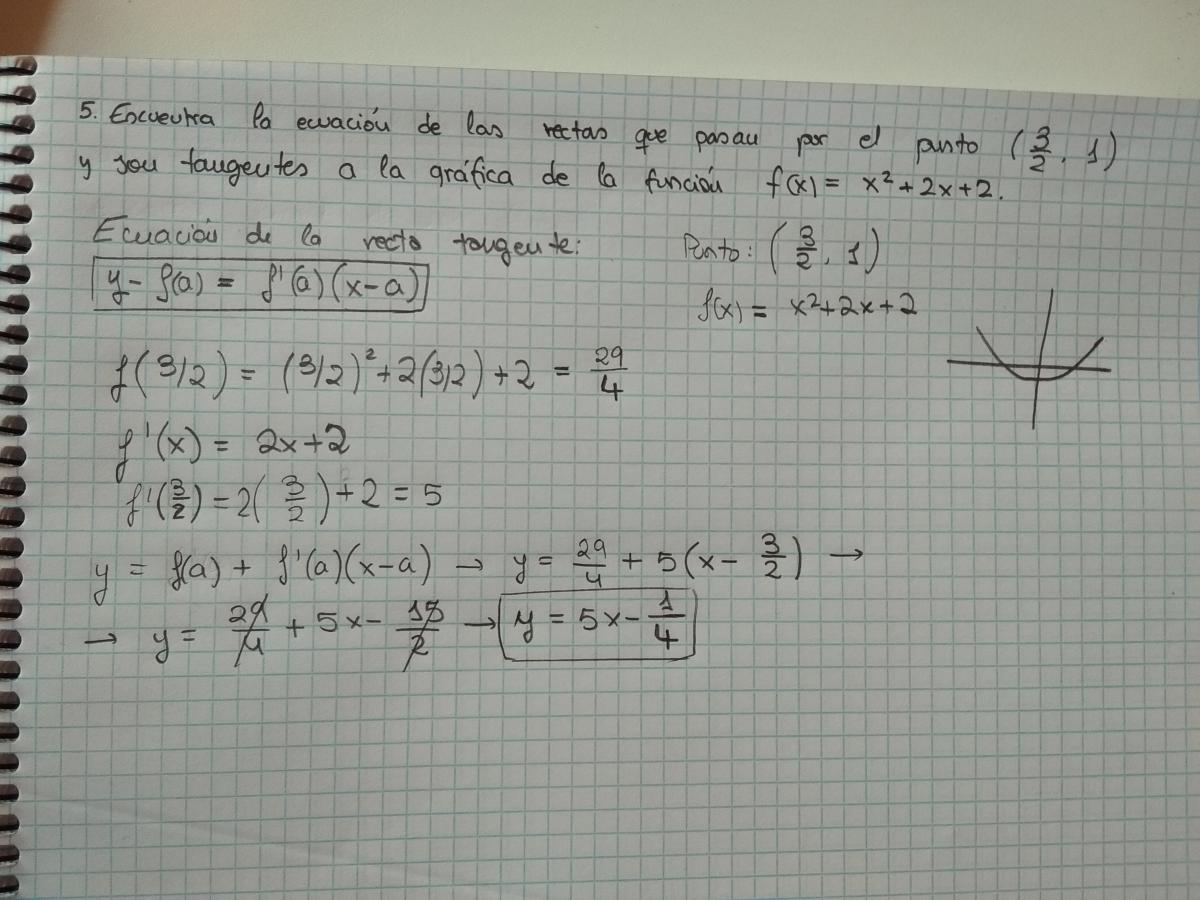 5. Encuentra la ecuación de las rectas que pasan por el punto (3/2, 1)
y son tangentes a la gráfica de la función f(x) = x²+2x+2.
Ecuación de la recta tangente:
y - f(a) = f'(a)(x-a)
Punto: (3/2, 1)
f(x) = x²+2x+2
f(3/2) = (3/2)²+2(3/2)+2 = 29/4
f'(x) = 2x+2
f'(3/2) = 2(3/2)+2 = 5
y = f(a) + f'(a)(x-a) → y = 29/4 + 5(x - 3/2) →
→ y = 29/4 + 5x - 15/2 → y = 5x - 1/4